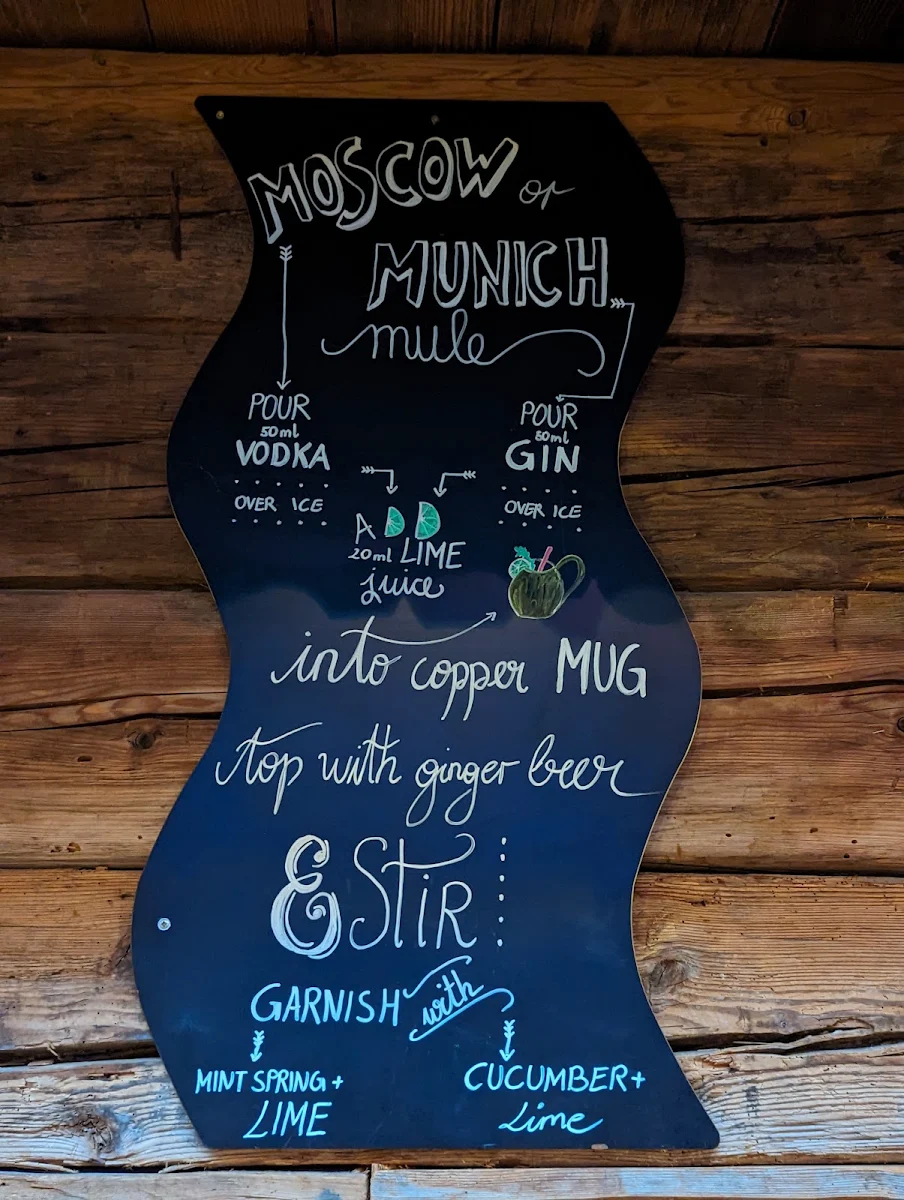 MOSCOW or
MUNICH
mule
POUR
50ml
VODKA
OVER ICE
POUR
50ml
GIN
OVER ICE
ADD
20ml LIME
juice
into copper MUG
top with ginger beer
& STIR
GARNISH with
MINT SPRING +
LIME
CUCUMBER +
Lime